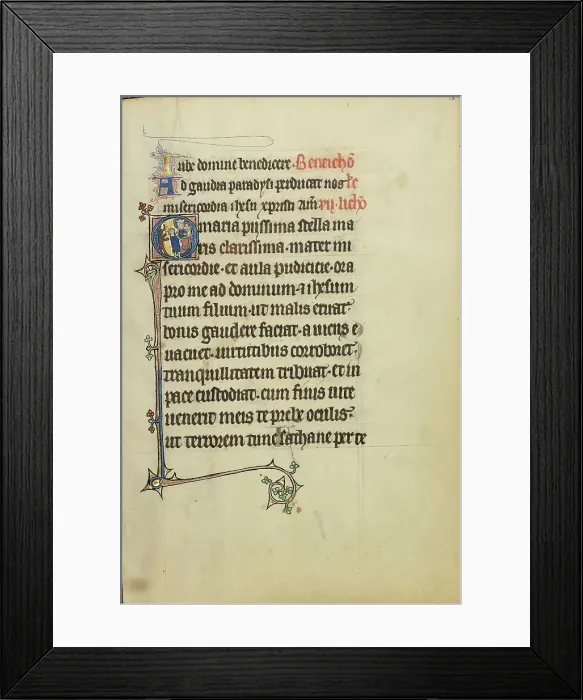 Iube domine benedicere. Beneichõ
Ad gaudia paradysi perducat nos le
misericordia ihesu xpristi am̃ vij. lichõ
O maria piissima stella ma
ris clarissima. mater mi
sericordie. et aula pudicicie. ora
pro me ad dominum. 7 ihesum
tuum filium. ut malis eruat.
bonis gaudere faciat. a uiciis e
uacuet. uirtutibus corroboret.
tranquillitatem tribuat. et in
pace custodiat. cum finis uite
uenerit meis te prebe oculis.
ut terrorem tunc sathane per te